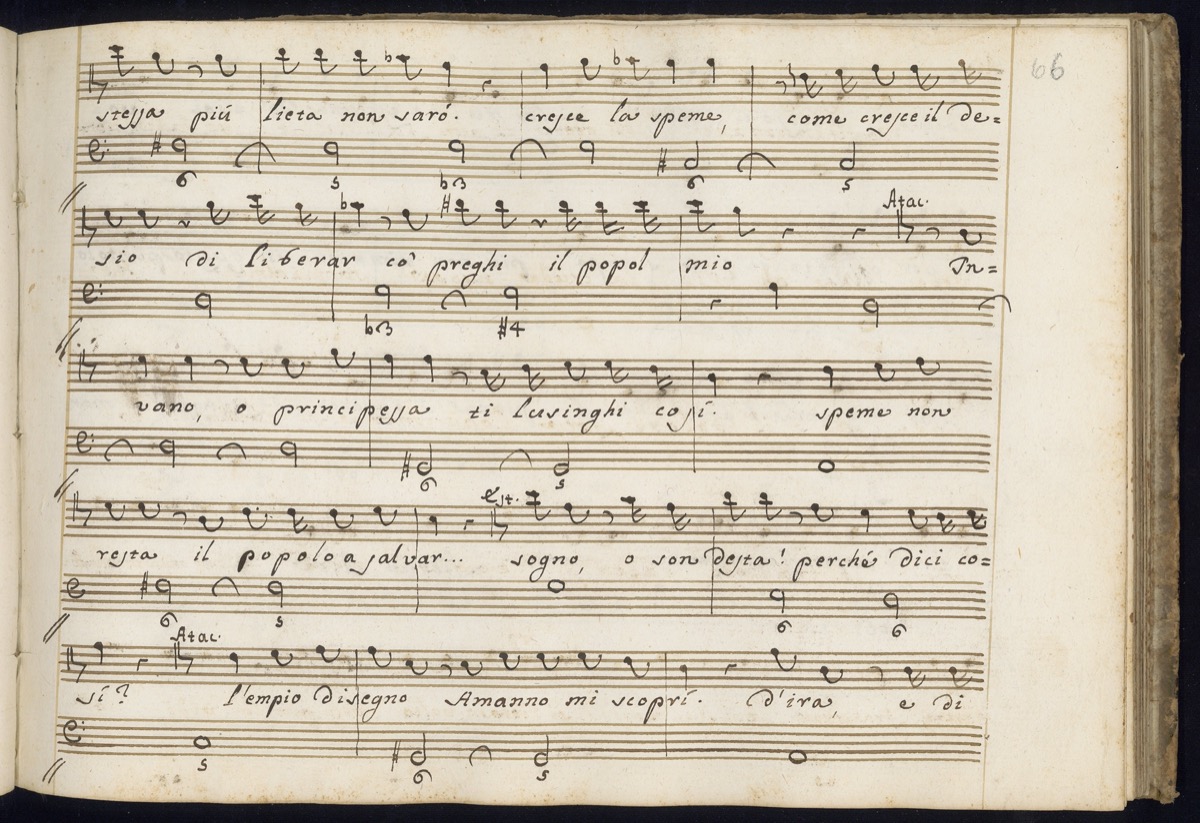 66
stessa più lieta non sarò. cresce la speme, come cresce il de=
6 5 b3 6 5
Atac.
sio di liberar co' preghi il popol mio In=
b3 #4
vano, o principessa ti lusinghi così. speme non
6 5
Est.
resta il popolo a salvar... sogno, o son desta! perché dici co=
6 5 6 6
Atac.
sí? l'empio disegno Amanno mi scoprí. d'ira, e di
5 6 5